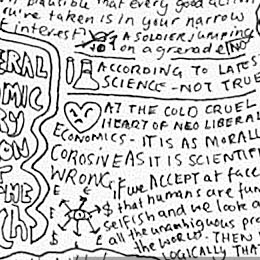 plausible that every good action
you're taken is in your narrow
interest?
A SOLDIER JUMPING
on a grenade (NO
ACCORDING TO LATEST
SCIENCE - NOT TRUE
AT THE COLD CRUEL
HEART OF NEO LIBERAL
ECONOMICS - IT IS AS MORALL
COROSIVE AS IT IS SCIENTIF
WRONG.
ERAL
OMIC
RY
ON
OF
THE
If we ACCEPT at face
that humans are fun
selfish and we look a
all the unambiguous pro
the WORLD. THEN
LOGICALLY THA
£
£
£
$
$